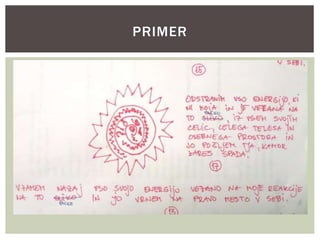 PRIMER
V SEBI.
15
ODSTRANIM VSO ENERGIJO, KI
NI MOJA IN JE VEZANA NA
TO BITJE, IZ VSEH SVOJIH
CELIC, CELEGA TELESA IN
OSEBNEGA PROSTORA IN
JO POŠLJEM TJA, KAMOR
DARES SPADA.
17
VZAMEM NAZAJ VSO SVOJO ENERGIJO VEZANO NA MOJE REAKCIJE
NA TO BITJE IN JO VRNEM NA PRAVO MESTO V SEBI.